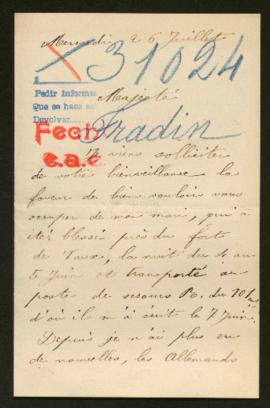 Mercredi 26 Juillet
31024
Pedir informe
Que se hace
Devolver
Majesté
Fradin
Fecn
e.a.c
Je viens solliciter
de votre bienveillance la
faveur de bien vouloir vous
occuper de mon mari, qui a
été blessé près du fort
de Vaux, la nuit du 4 au
5 Juin et transporté au
poste de secours R. du
d'où il m'a écrit le 7 Juin.
Depuis je n'ai plus eu
de nouvelles, les Allemands